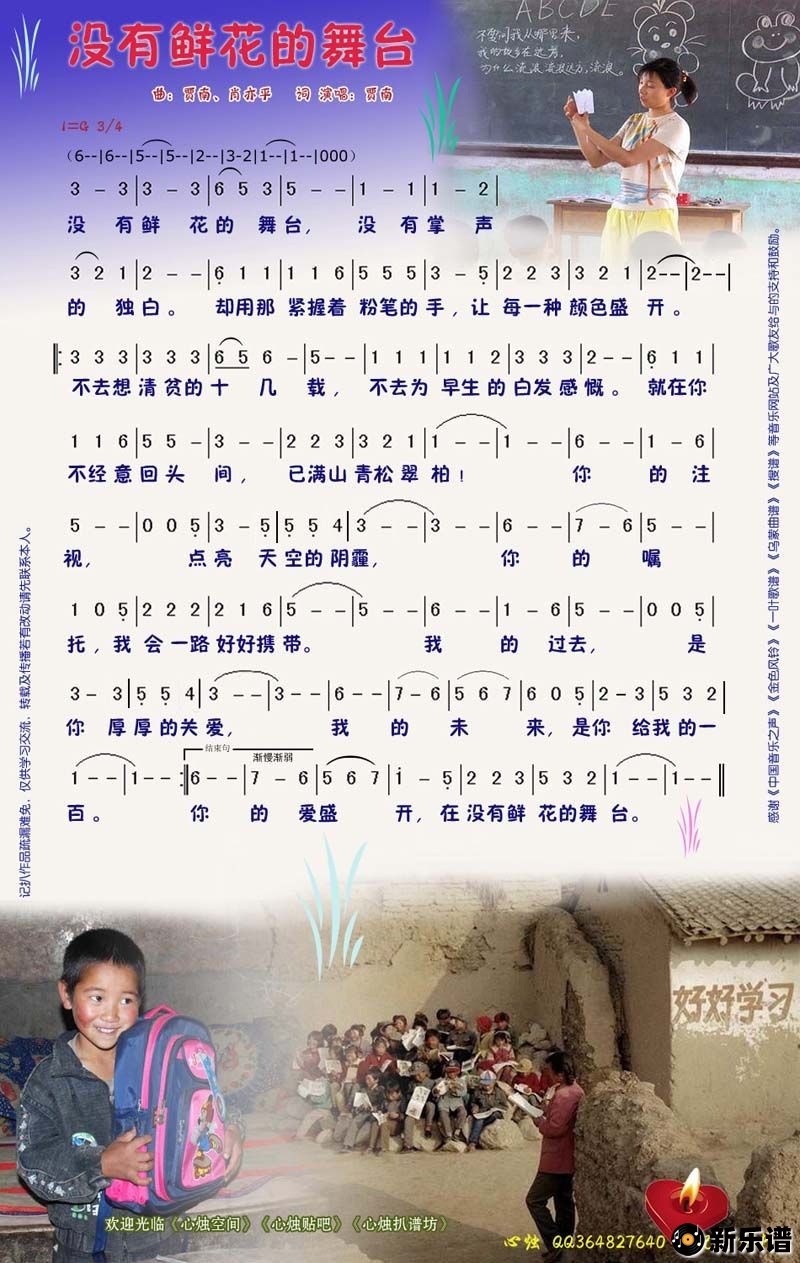 没有鲜花的舞台
曲：贾南、肖亦乎 词 演唱：贾南
1=G 3/4
ABCDE
不要问我从哪里来，
我的故乡在远方
为什么流浪 流浪远方，流浪。
（6--|6--|5--|5--|2--|3-2|1--|1--|000）
3 - 3|3 - 3|6 5 3|5 - -|1 - 1|1 - 2|
没 有鲜 花的 舞台， 没 有掌 声
3 2 1|2 - -|6 1 1|1 1 6|5 5 5|3 - 5|2 2 3|3 2 1|2--|2--|
的 独白。 却用那 紧握着 粉笔的 手，让 每一种 颜色盛 开。
3 3 3|3 3 3|6 5 6 -|5 - -|1 1 1|1 1 2|3 3 3|2 - -|6 1 1|
不去想 清贫的 十 几 载， 不去为 早生的 白发感 慨。 就在你
1 1 6|5 5 -|3 - -|2 2 3|3 2 1|1 - -|1 - -|6 - -|1 - 6|
不经意 回头 间， 已满山 青松翠 柏！ 你 的 注
5 - -|0 0 5|3 - 5|5 5 4|3 - -|3 - -|6 - -|7 - 6|5 - -|
视， 点 亮 天空的 阴霾， 你 的 嘱
1 0 5|2 2 2|2 1 6|5 - -|5 - -|6 - -|1 - 6|5 - -|0 0 5|
托，我 会一路 好好携 带。 我 的 过去， 是
3 - 3|5 5 4|3 - -|3 - -|6 - -|7 - 6|5 6 7|6 0 5|2 - 3|5 3 2|
你 厚 厚的关 爱， 我 的 未 来，是你 给我的一
结束句
渐慢渐弱
1 - -|1 - -:|6 - -|7 - 6|5 6 7|1 - 5|2 2 2|5 3 2|1 - -|1 - -||
百。 你 的 爱盛 开，在 没有鲜 花的舞 台。
记扒作品疏漏难免，仅供学习交流，转载及传播若有改动请先联系本人。
感谢《中国音乐之声》《金色风铃》《一叶歌谱》《乌蒙曲谱》《搜谱》等音乐网站及广大歌友给与的支持和鼓励。
好好学习
欢迎光临《心烛空间》《心烛贴吧》《心烛扒谱坊》
心烛 QQ364827640
新乐谱